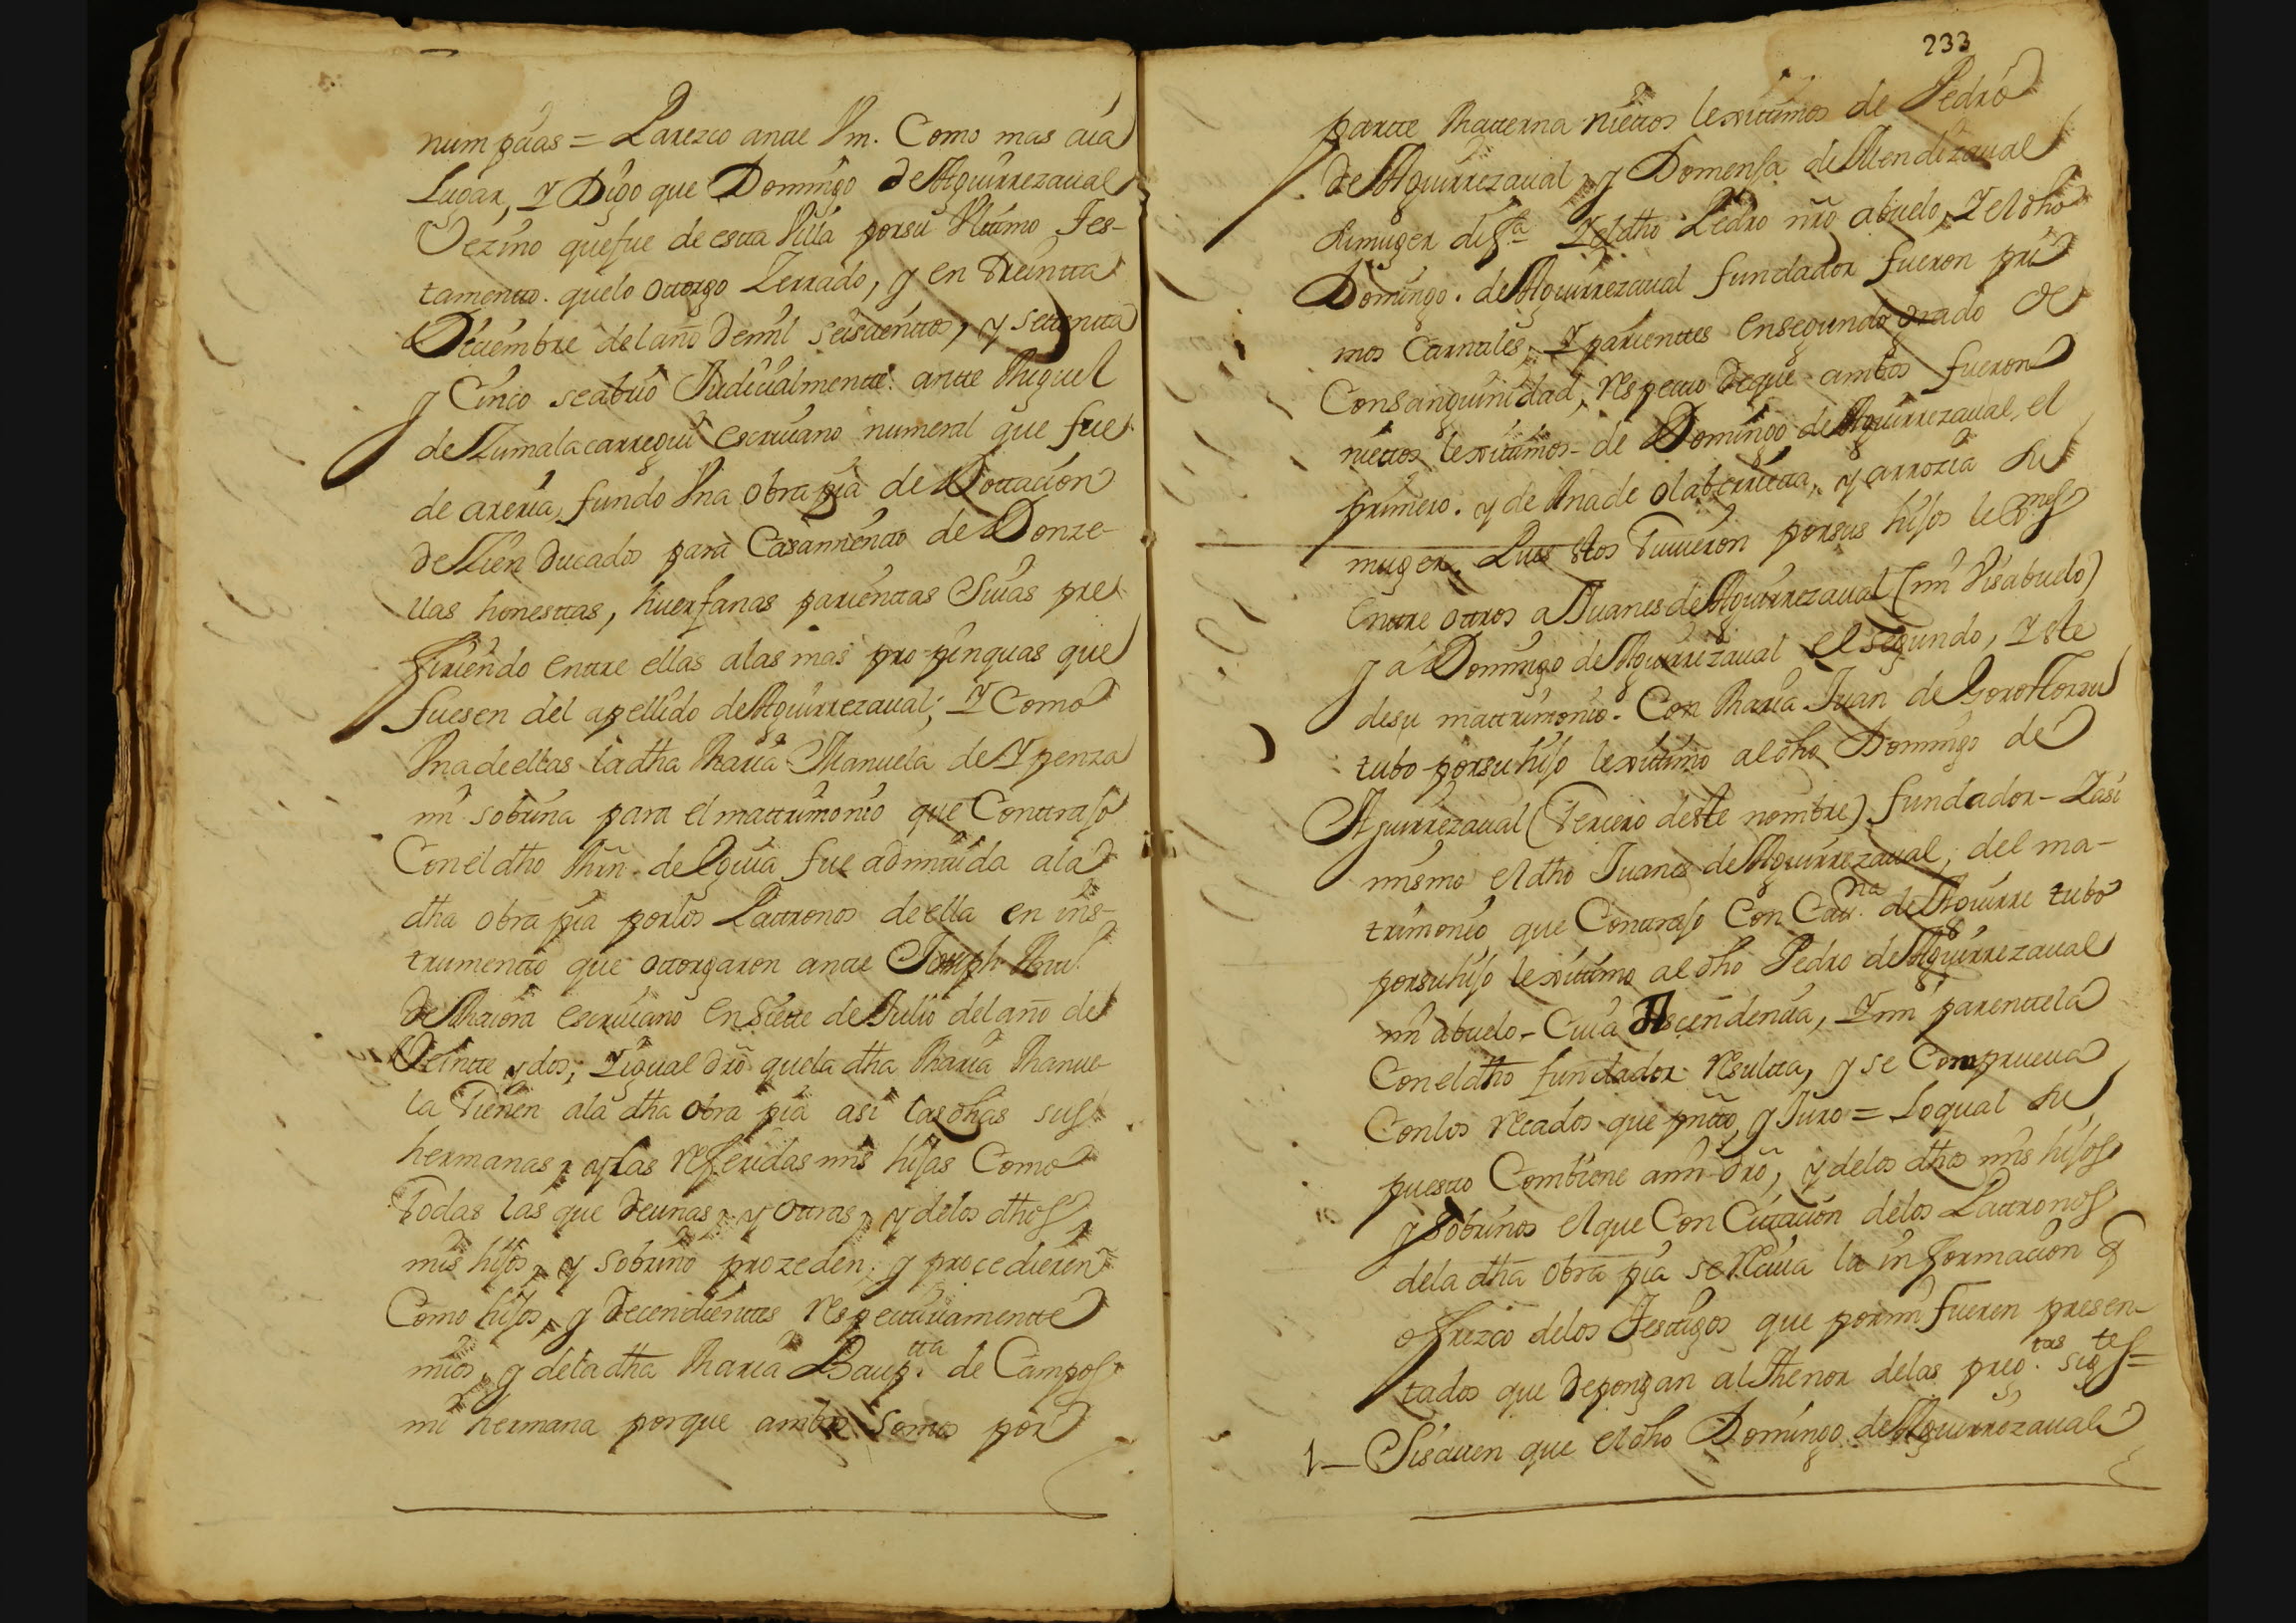 numpcias = Parezco antte Vm. Como mas aia
Lugar, Y Digo que Domingo de Aguirrezaual
Vezino que fue de estta Villa por su Vlttimo Tes-
tamentto. que lo ottorgo Zerrado, y en treintta
Diciembre del año de mil seiscienttos, y settentta
y Cinco se abrio Judicialmentte antte Miguel
de Zumalacarregui escriuano numeral que fue
de areria, fundo Vna obra pia de Dottacion
de Zien Ducados para Casamientto de Donze-
llas honesttas, huerfanas parienttas Suias pre
firiendo enttre ellas a las mas propinquas que
fuesen del apellido de Aguirrezaual; Y Como
Vna de ellas la dha Maria Manuela de Ypenza
mi sobrina para el mattrimonio que Conttrajo
Con el dho Mrn. de Eguia fue admitida a la
dha obra pia por los Pattronos de ella en ins-
trumentto que ottorgaron antte Joseph Antt.
de Maiora escriuano en Siette de Julio del año de
Veintte y dos; Y igual dro que la dha Maria Manue-
la Tienen a la dha obra pia asi las dhas sus
hermanas, y las referidas mis hijas Como
Todas las que de unas, y ottras, y de los dhos
mis hijos, y sobrino prozeden, y procedieren
Como hijos, y decendienttes respecttiuamentte
mios, y de la dha Maria Baup.tta de Campos
mi hermana porque ambos somos por
233
partte Matterna niettos lexittimos de Pedro
de Aguirrezaual, y Domensa de Mendizaual
su muger dif.ta Y el dho Pedro nro abuelo, Y el dho
Domingo. de Aguirrezaual fundador fueron pri
mos Carnales, Y parienttes en segundo grado de
Consanguinidad, respectto de que ambos fueron
niettos lexittimos de Domingo de Aguirrezaual, el
primero. y de Ana de olaberrietta, y arrozia su
muger. Pues estos Tuuieron por sus hijos lex.mos
enttre ottros a Juanes de Aguirrezaual (mi Visabuelo)
y a Domingo de Aguirrezaual el segundo, Y este
de su mattrimonio. Con Maria Juan de Gorottorzu
tubo por su hijo lexittimo al dho Domingo de
Aguirrezaual (Tercero de este nombre) fundador - Y asi
mismo el dho Juanes de Aguirrezaual, del ma-
trimonio que Conttrajo Con Cat.na de Aguirre tubo
por su hijo lexittimo al dho Pedro de Aguirrezaual
mi abuelo - Cuia Ascendencia, Y mi parenttela
Con el dho fundador resultta, y se Comprueua
Con los recados que pntto, y Juro = Lo qual su
puestto Combiene a mi dro, y de los dhos mis hijos
y sobrinos el que Con Cittacion de los Pattronos
de la dha obra pia se reciua la informacion q
ofrezco de los Testtigos que por mi fueren presen-
tados que depongan al Thenor de las preg.tas sig.tes =
1 - Si sauen que el dho Domingo de Aguirrezaual